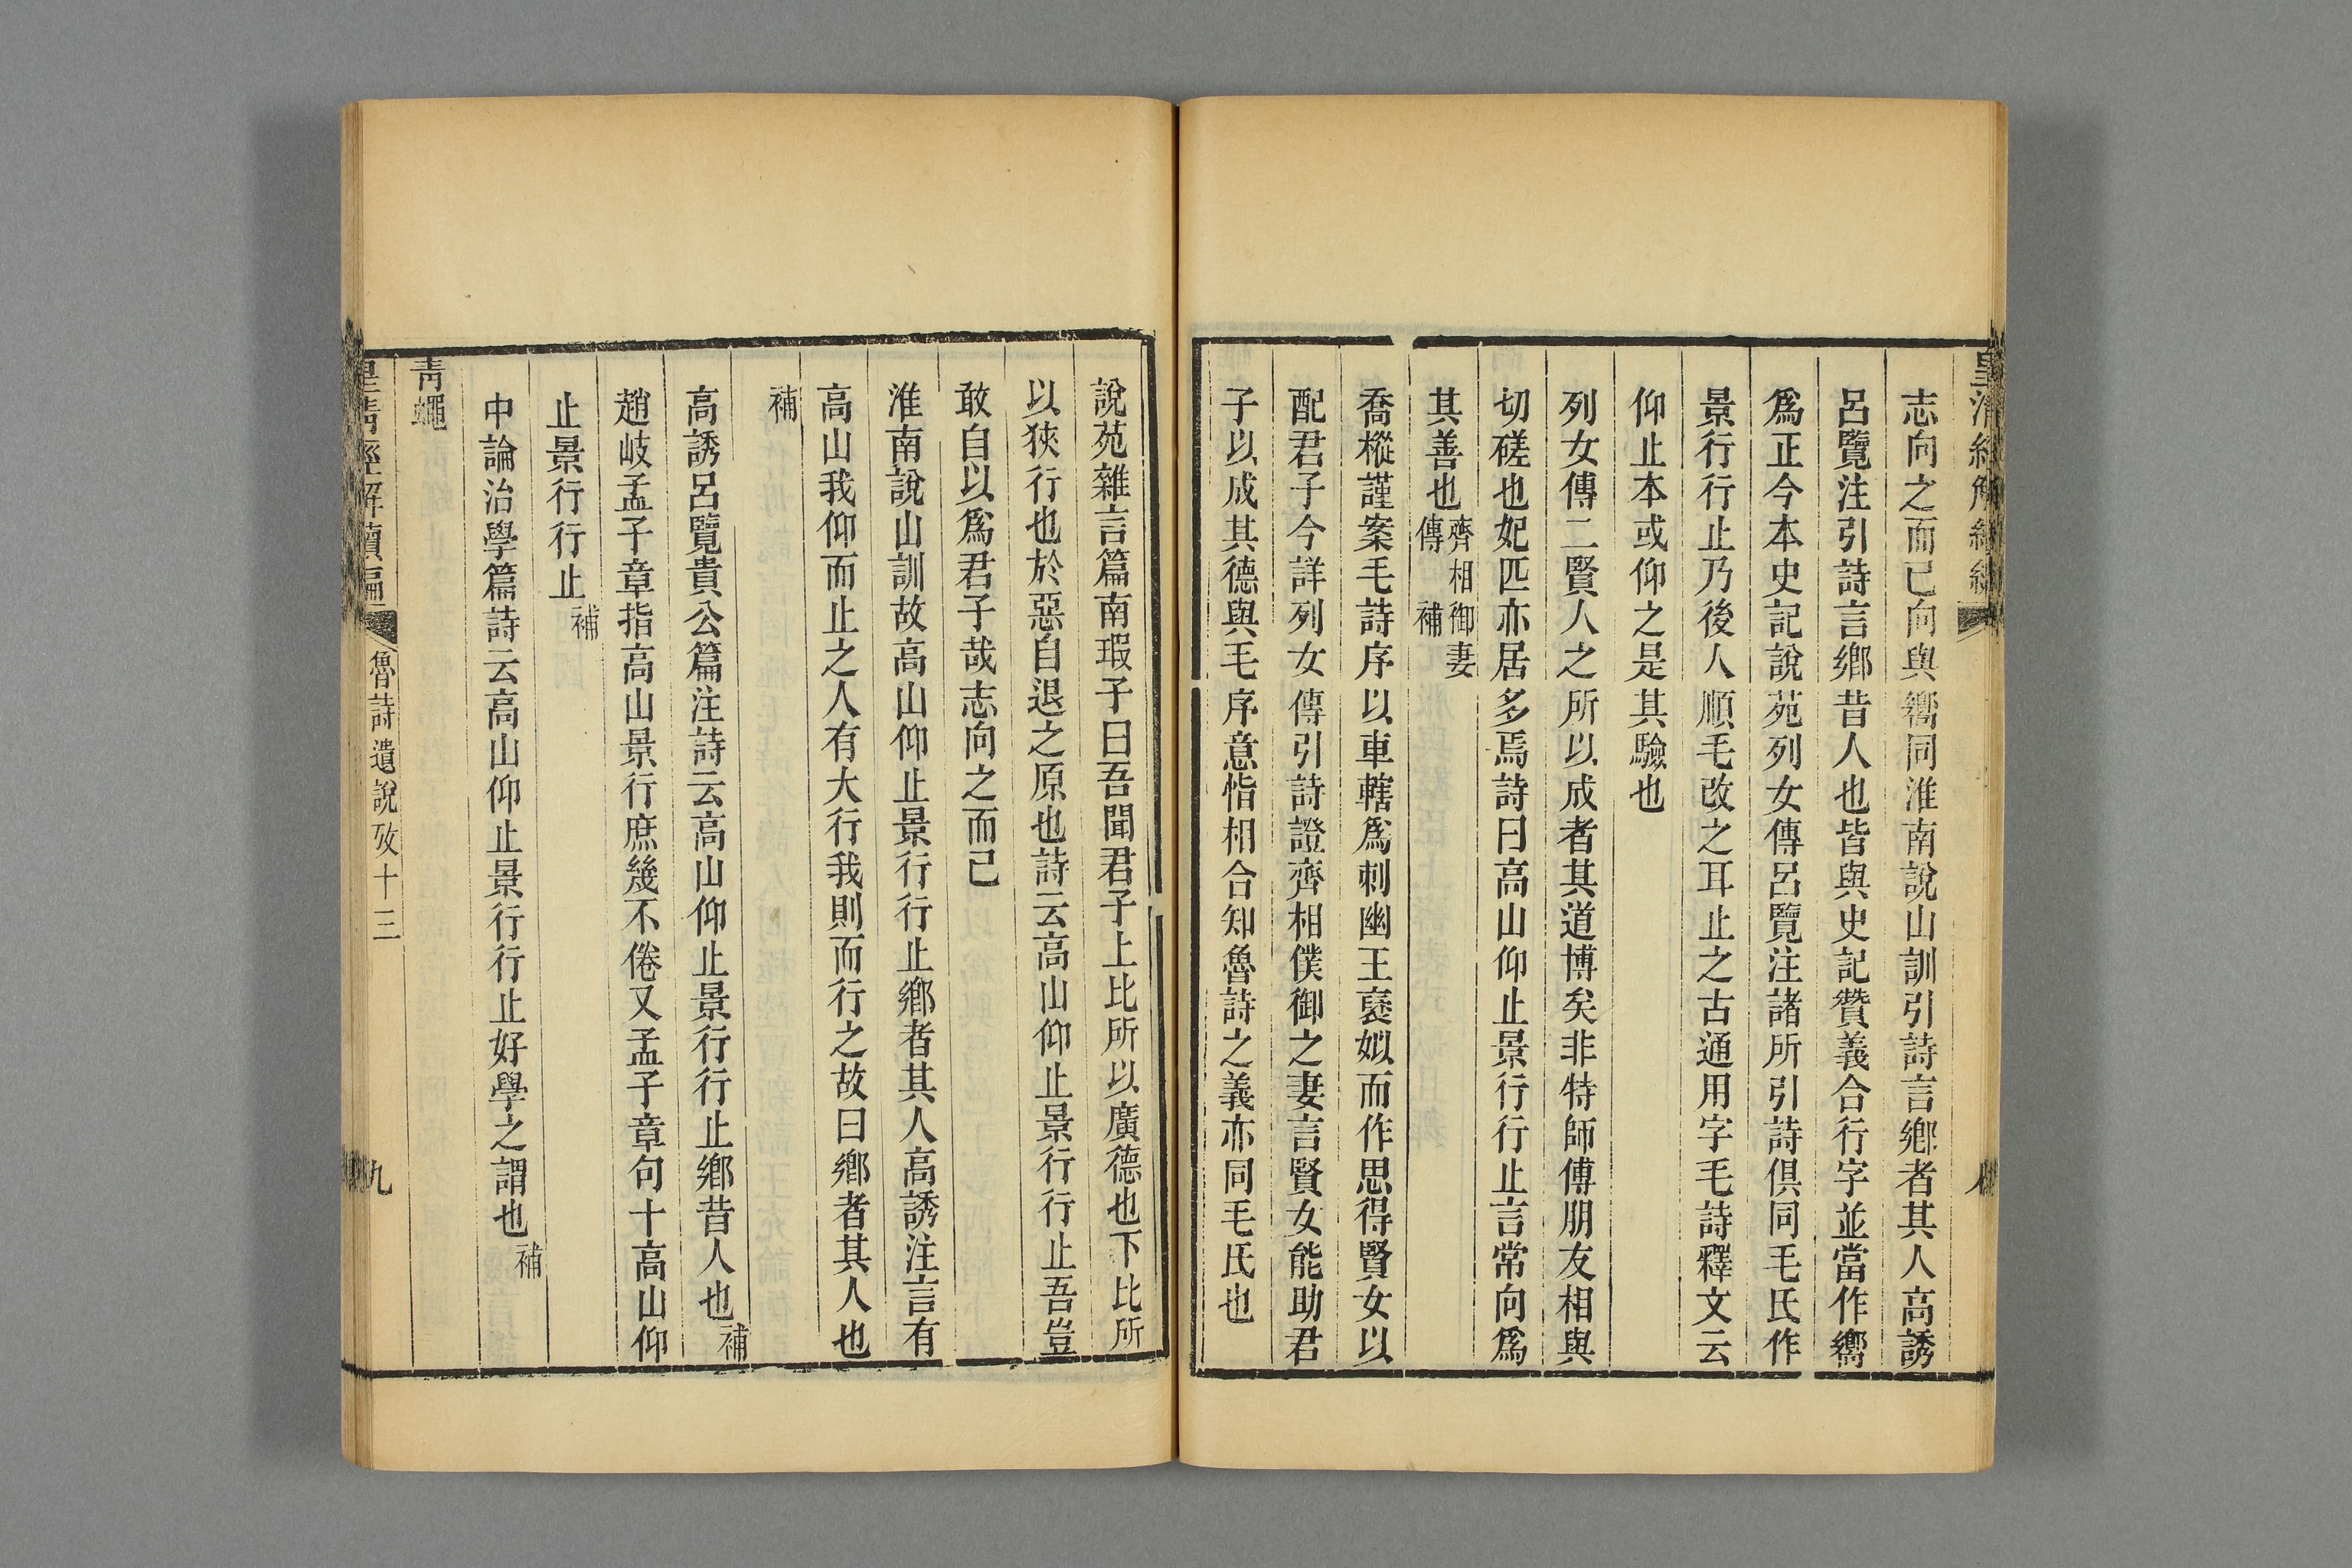 志向之而已向與嚮同淮南說山訓引詩言鄉者其人高誘
呂覽注引詩言鄉昔人也皆與史記贊義合行字並當作嚮
爲正今本史記說苑列女傳呂覽注諸所引詩俱同毛氏作
景行行止乃後人順毛改之耳止之古通用字毛詩釋文云
仰止本或仰之是其驗也
列女傳二賢人之所以成者其道博矣非特師傅朋友相與
切磋也妃匹亦居多焉詩曰高山仰止景行行止言常向爲
其善也齊相御妻傳補
喬樅謹案毛詩序以車舝爲刺幽王襃姒而作思得賢女以
配君子今詳列女傳引詩證齊相僕御之妻言賢女能助君
子以成其德與毛序意恉相合知魯詩之義亦同毛氏也
說苑雜言篇南瑕子曰吾聞君子上比所以廣德也下比所
以狹行也於惡自退之原也詩云高山仰止景行行止吾豈
敢自以爲君子哉志向之而已
淮南說山訓故高山仰止景行行止鄉者其人高誘注言有
高山我仰而止之人有大行我則而行之故曰鄉者其人也
補
高誘呂覽貴公篇注詩云高山仰止景行行止鄉昔人也補
趙岐孟子章指高山景行庶幾不倦又孟子章句十高山仰
止景行行止補
中論治學篇詩云高山仰止景行行止好學之謂也補
青蠅
皇清經解續編 魯詩遺說攷十三 九